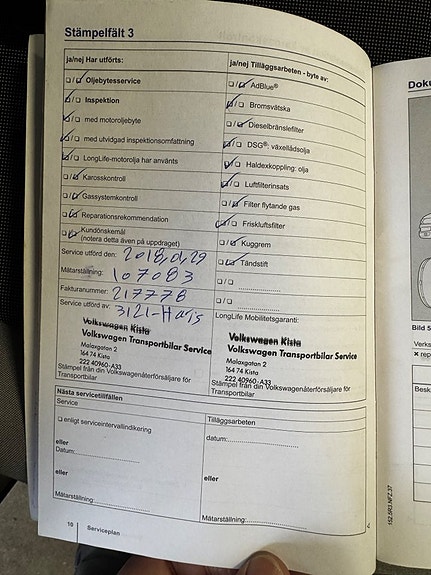 Stämpelfält 3
ja/nej Har utförts:
ja/nej Tilläggsarbeten - byte av:
Oljebytesservice
AdBlue®
Inspektion
Bromsvätska
med motoroljebyte
Dieselbränslefilter
med utvidgad inspektionsomfattning
DSG®: växellådsolja
LongLife-motorolja har använts
Haldexkoppling: olja
Karosskontroll
Luftfilterinsats
Gassystemkontroll
Filter flytande gas
Reparationsrekommendation
Friskluftsfilter
Kundönskemål
(notera detta även på uppdraget)
Kuggrem
Tändstift
Service utförd den: 2018,01,29
Mätarställning: 107083
Fakturanummer: 217778
Service utförd av: 3121-Haris
LongLife Mobilitetsgaranti:
Volkswagen Kista
Volkswagen Transportbilar Service
Malaxgatan 2
164 74 Kista
222 40960-A33
Stämpel från din Volkswagenåterförsäljare för
Transportbilar
Volkswagen Kista
Volkswagen Transportbilar Service
Malaxgatan 2
164 74 Kista
222 40960-A33
Stämpel från din Volkswagenåterförsäljare för
Transportbilar
Nästa servicetillfällen
Service
Tilläggsarbeten
enligt serviceintervallindikering
datum:
eller
Datum:
eller
eller
Mätarställning:
Mätarställning:
10 Serviceplan
Doku
Bild 5
Verks
rep
Besk
152.5R3.NFZ.37